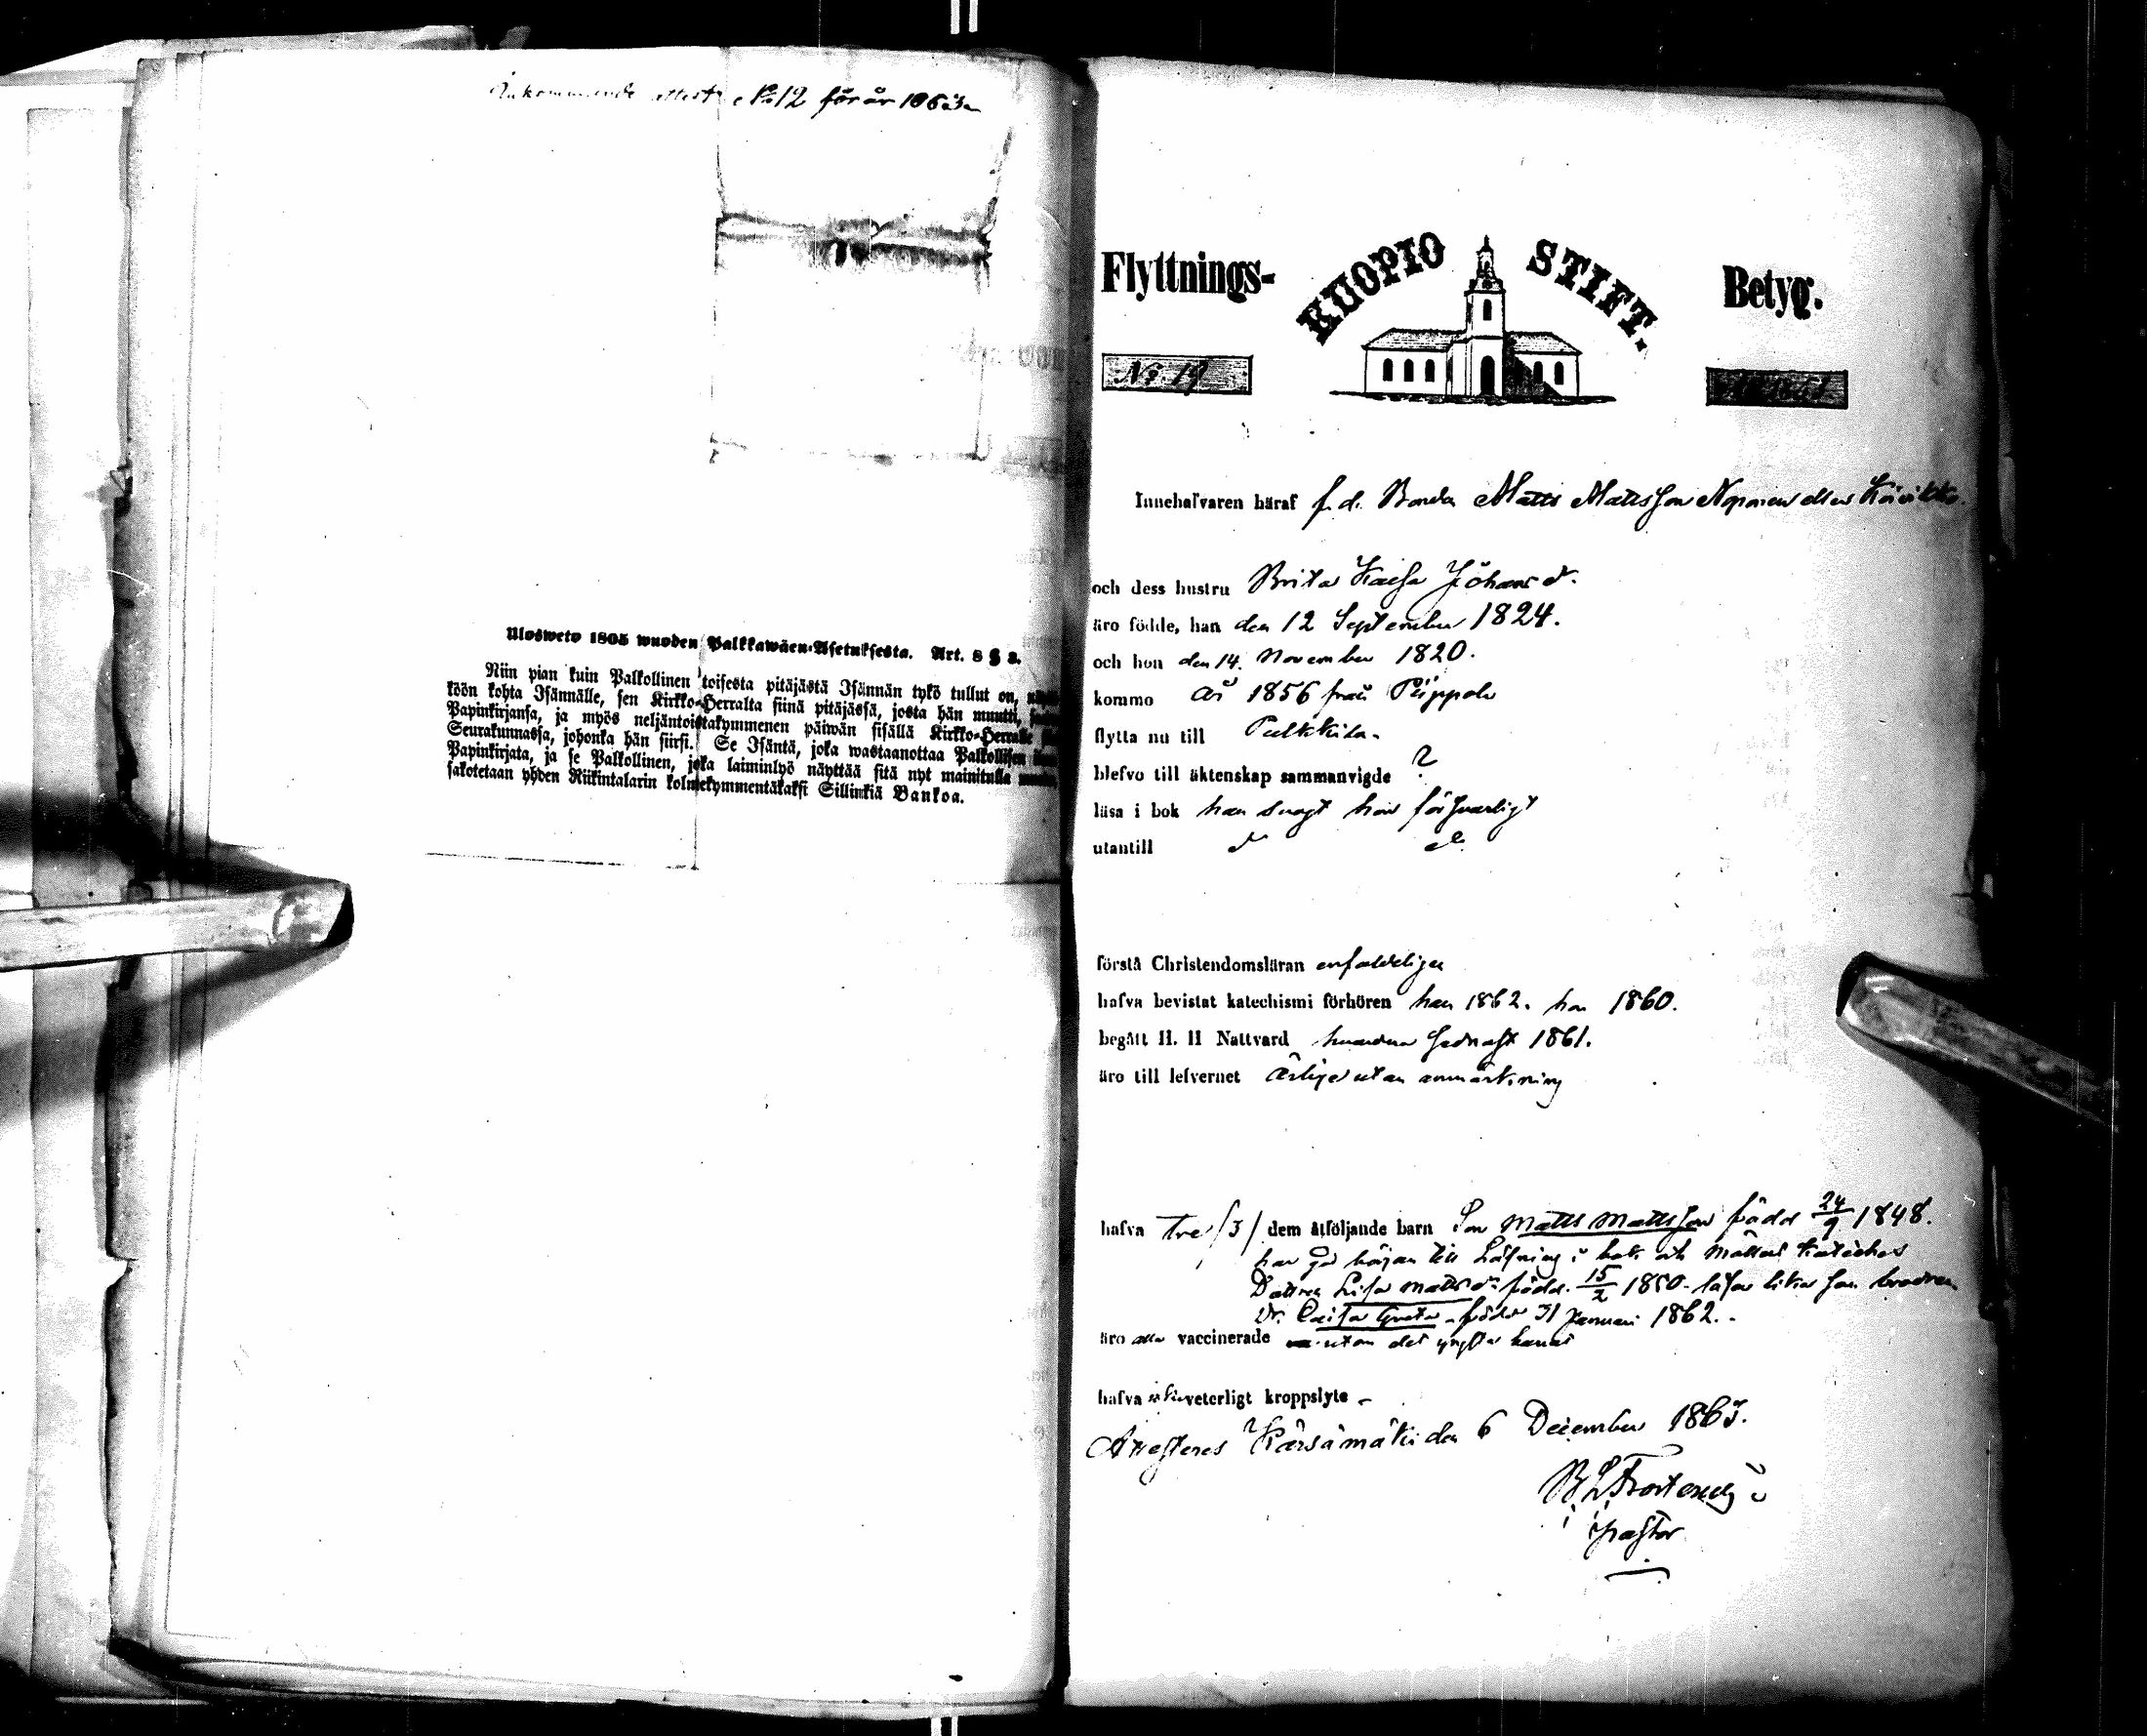 Ankommande attest No 12 för år
Ulosweto 1805 wuoden Palkkawäen-Asetuksesta. Art. 8 § 2.
Niin pian kuin Palkollinen toisesta pitäjästä Isännän tykö tullut on,
köön kohta Isännälle, sen Kirkko-Herralta siinä pitäjässä, josta hän muutti,
Papinkirjansa, ja myös neljäntoistakymmenen päiwän sisällä Kirkko-Herralle
Seurakunnassa, johonka hän siirsi. Se Isäntä, joka wastaanottaa Palkollisen
Papinkirjata, ja se Palkollinen, joka laiminlyö näyttää sitä nyt mainitulla
sakotetaan yhden Riikintalarin kolmekymmentäkaksi Sillinkiä Bankoa.
Flyttnings- KUOPIO STIFT. Betyg.
No 19
Innehafvaren häraf f. d. Bonden Matts Mattsson eller
och dess hustru Brita Kaisa Johansd.
äro födde, han den 12 September 1824.
och hon den 14. November 1820.
kommo år 1856 från Piippola
flytta nu till Pulkkila.
blefvo till äktenskap sammanvigde ?
läsa i bok han svagt hon försvarligt
utantill d:o d:o
förstå Christendomsläran enfaldeligen
hafva bevistat katechismi förhören han 1862. hon 1860.
begått H. H Nattvard hvardera sednast 1861.
äro till lefvernet ärliga utan anmärkning
hafva tre /3/ dem åtföljande barn Son Matts Mattsson född 24/9 1848.
har god början till Läsning i bok och
Dottren Lisa Mattsd:r född 15/2 1850. läser lika som brodren
D:r Caisa Greta född 31 Januari 1862.
äro alla vaccinerade utom det yngsta barnet
hafva icke veterligt kroppslyte
Attesteras Kärsämäki den 6 December 1863.
pastor